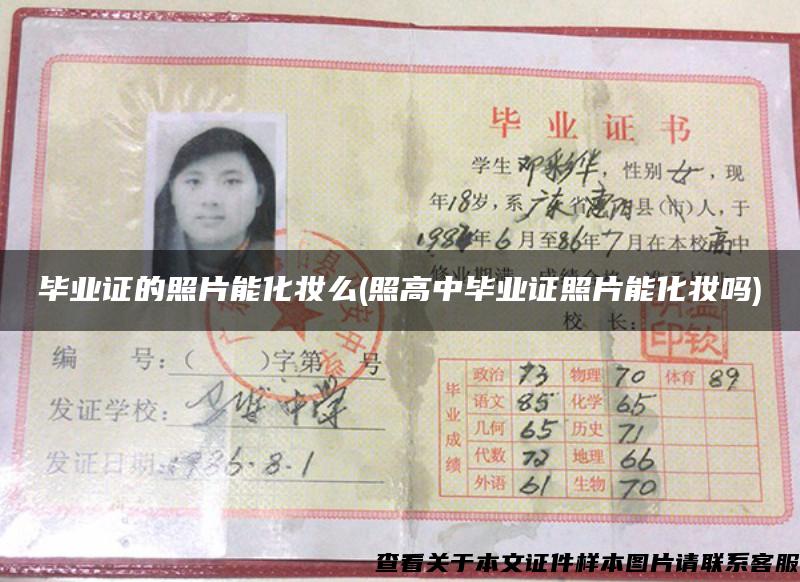 毕业证书
学生邓彩华，性别女，现
年18岁，系广东省惠阳县（市）人，于
1984年6月至86年7月在本校高中
毕业证的照片能化妆么(照高中毕业证照片能化妆吗)
校 长：
编 号：（ ）字第 号
发证学校：
中学
发证日期：1986.8.1
毕业成绩
政治 73 物理 70 体育 89
语文 85 化学 65
几何 65 历史 71
代数 72 地理 66
外语 61 生物 70
查看关于本文证件样本图片请联系客服